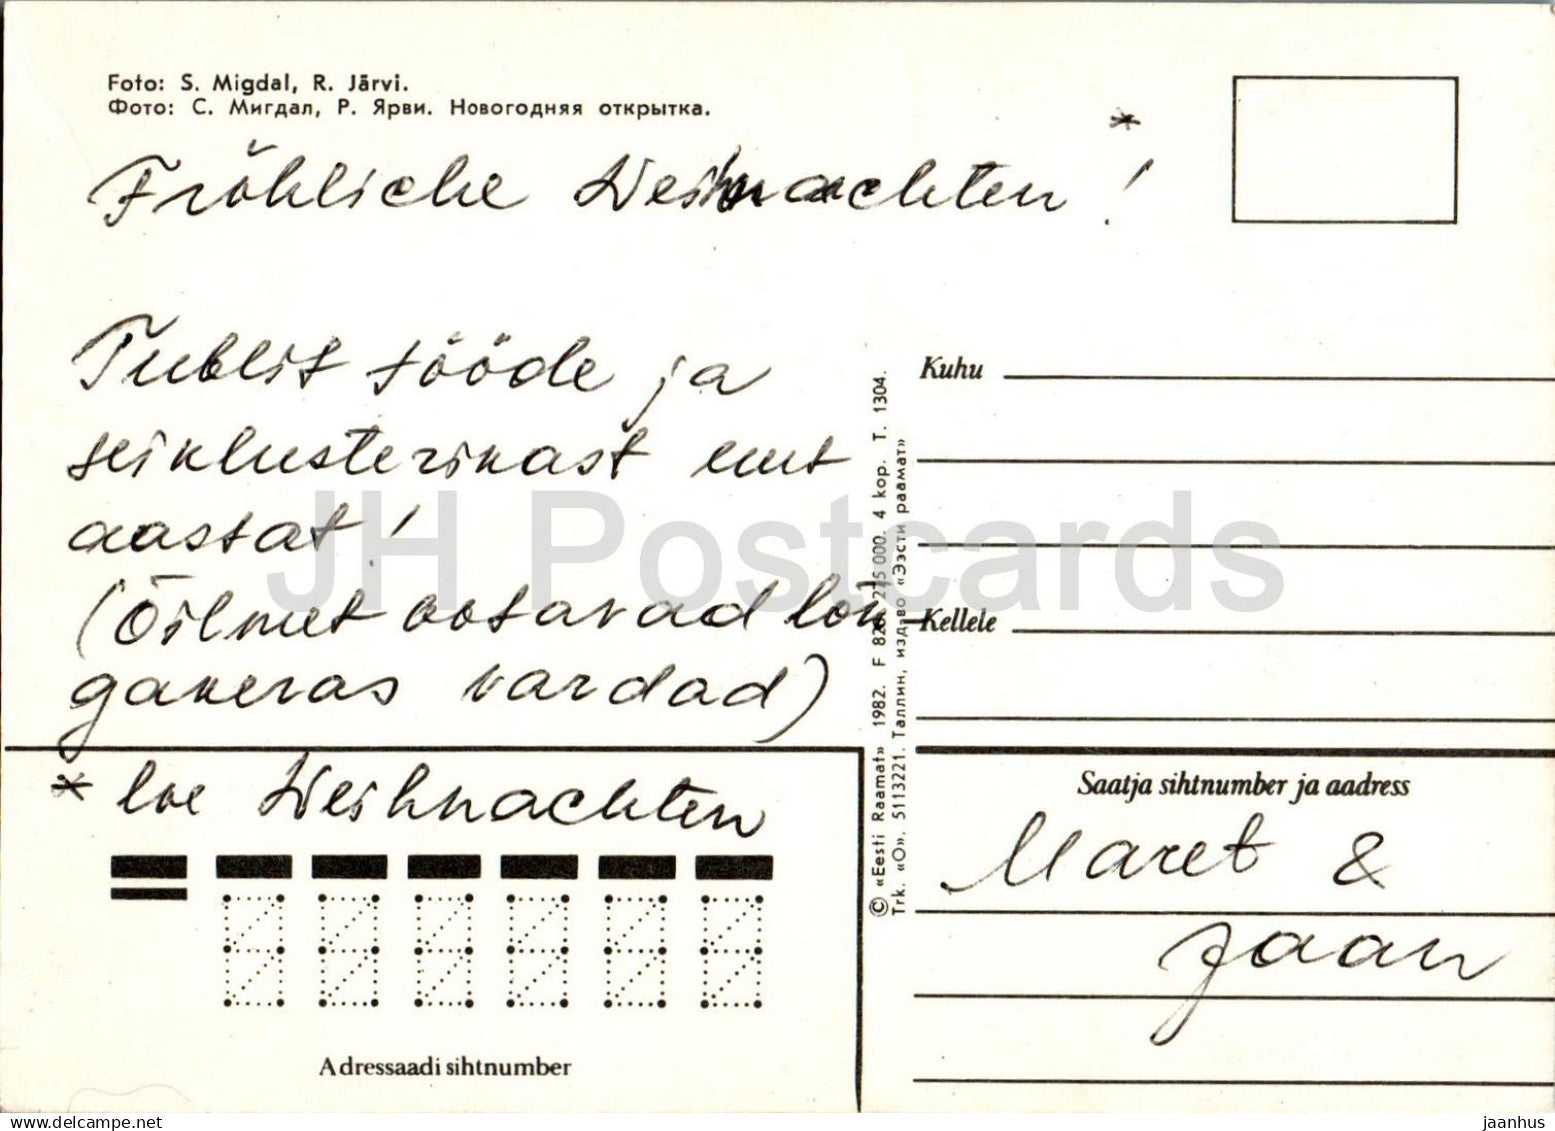 Foto: S. Migdal, R. Järvi.
Фото: С. Мигдал, Р. Ярви. Новогодняя открытка.
*
Fröhliche Weihnachten!
Tublit tööde ja
seiklusterikast uut
aastat!
(Õilmet ootavad
gakeras vardad)
* loe Weihnachten
Adressaadi sihtnumber
© «Eesti Raamat» 1982. 4 kop. T. 1304.
Trk. «O». 5113221. Таллин, изд-во «Ээсти раамат»
Kuhu
Kellele
Saatja sihtnumber ja aadress
Maret &
Jaan
JH Postcards
www.delcampe.net
jaanhus